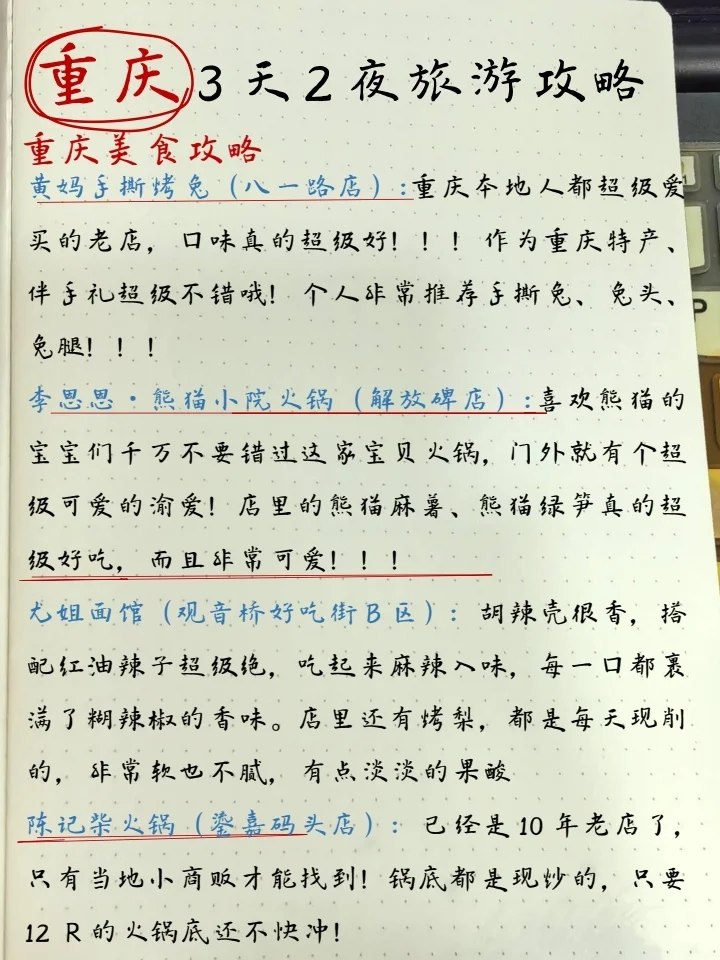 重庆3天2夜旅游攻略
重庆美食攻略
黄妈手撕烤兔（八一路店）:重庆本地人都超级爱
买的老店，口味真的超级好！！！作为重庆特产、
伴手礼超级不错哦！个人非常推荐手撕兔、兔头、
兔腿！！！
李思思·熊猫小院火锅（解放碑店）:喜欢熊猫的
宝宝们千万不要错过这家宝贝火锅，门外就有个超
级可爱的渝爱！店里的熊猫麻薯、熊猫绿笋真的超
级好吃，而且非常可爱！！！
尤姐面馆（观音桥好吃街B区）：胡辣壳很香，搭
配红油辣子超级绝，吃起来麻辣入味，每一口都裹
满了糊辣椒的香味。店里还有烤梨，都是每天现削
的，非常软也不腻，有点淡淡的果酸
陈记柴火锅（鎏嘉码头店）：已经是10年老店了，
只有当地小商贩才能找到！锅底都是现炒的，只要
12 R的火锅底还不快冲！
P